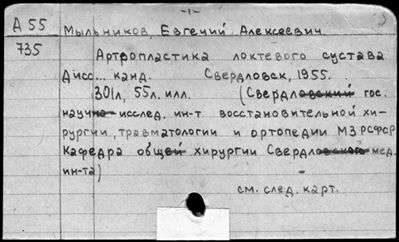 -1-
А 55 Мыльников, Евгений Алексеевич.
735
Артропластика локтевого сустава
Дисс... канд. Свердловск, 1955.
301л, 55л. илл. (Свердловский гос.
научно-исслед. ин-т восстановительной хи-
рургии, травматологии и ортопедии МЗ РСФСР
Кафедра общей хирургии Свердловского мед.
ин-та)
см. след. карт.